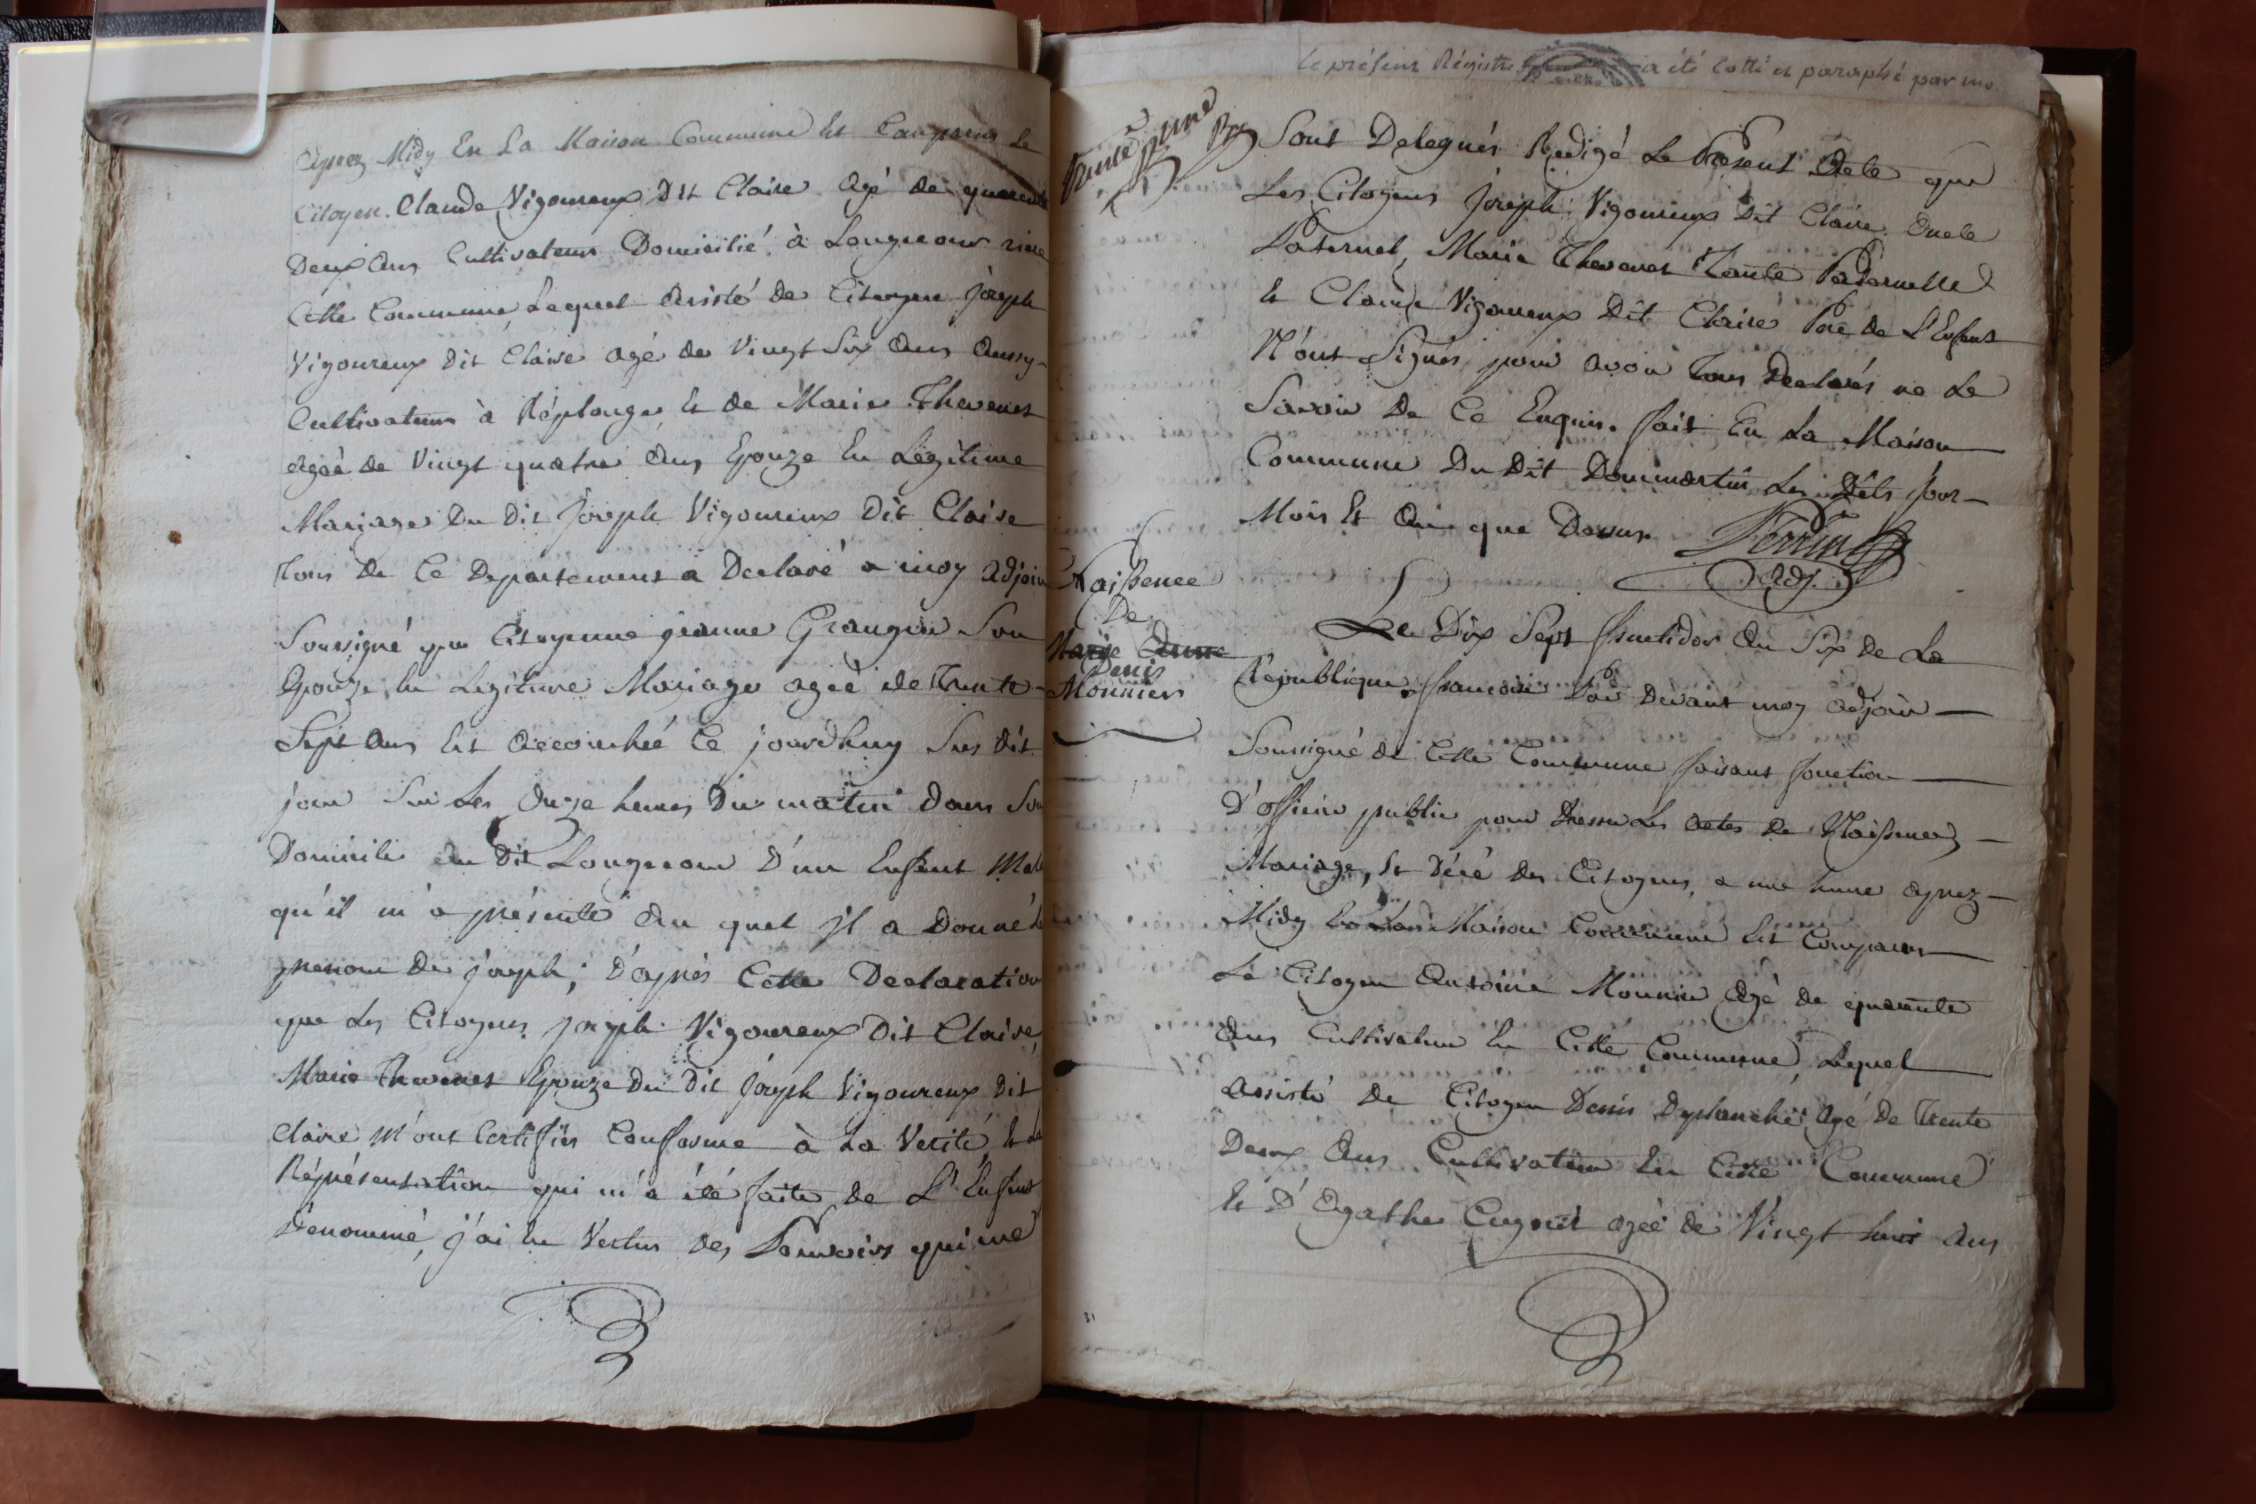 Aprez Midy En La Maison Commune Est Comparus Le
Citoyen Claude Vigoureux Dit Claire Agé de quarente
Deux Ans Cultivateur Domicilié à Longecour riere
Cette Commune Lequel Assisté de Citoyen Joseph
Vigoureux Dit Claire agé de Vingt Six Ans Aussy
Cultivateur à Réplonge Et de Marie Thevenet
Agéé de Vingt quatre Ans Epouze En Légitime
Mariage Du Dit Joseph Vigoureux Dit Claire
Tous de Ce Departement a Declaré a moy adjoin
Soussigné que Citoyenne jeanne Grangier Son
Epouze En Legitime Mariage agéé de Trente
Sept Ans Est Accouchéé Ce jourd'huy Sus dit
jour Sur Les Onze heures Du matin dans Son
Domicile du Dit Longecour D'un Enfent Male
qu'il m'a présenté Au quel jl a Donné Le
prenom De joseph; D'aprés Cette Declaration
que Les Citoyens joseph Vigoureux Dit Claire,
Marie Thevenet Epouze Du Dit joseph Vigoureux Dit
Claire M'ont Certifiés Conforme à La Verité, Et La
Réprésentation qui m'a été faite de L'Enfent
Dénommé, j'ai En Vertus des Pouvoirs qui me
le présent Régistre a été Cotté et paraphé par mo
Trente
Sont Delegués Redigé Le Présent Acte que
Les Citoyens Joseph Vigoureux Dit Claire Oncle
Paternel, Marie Thevenet Tante Paternelle
Et Claude Vigoureux Dit Claire Pere de L'Enfent
N'ont Signés pour avoir Tous Declarés ne Le
Savoir De Ce Enquis. fait En La Maison
Commune Du Dit Dommartin Les Dits Jour
Mois Et An que Dessus
Perrin
Adj.
Naissence
De
Marie Anne
Denis
Monnier
Le Dix Sept fructidor An Six De La
République françoise Par Devant moy Adjoin
Soussigné de Cette Commune faisant fonction
D'officier public pour Dresser Les Actes De Naissences
Mariage, Et Décé Des Citoyens, a une heure aprez
Midy En La Maison Commune Est Comparus
Le Citoyen Antoine Monnier Agé de quarante
Ans Cultivateur En Cette Commune, Lequel
Assisté De Citoyen Denis Dyplanche Agé De Trente
Deux Ans Cultivateur En Cette Commune
Et D'Agathe Cugnet agéé de Vingt huit Ans